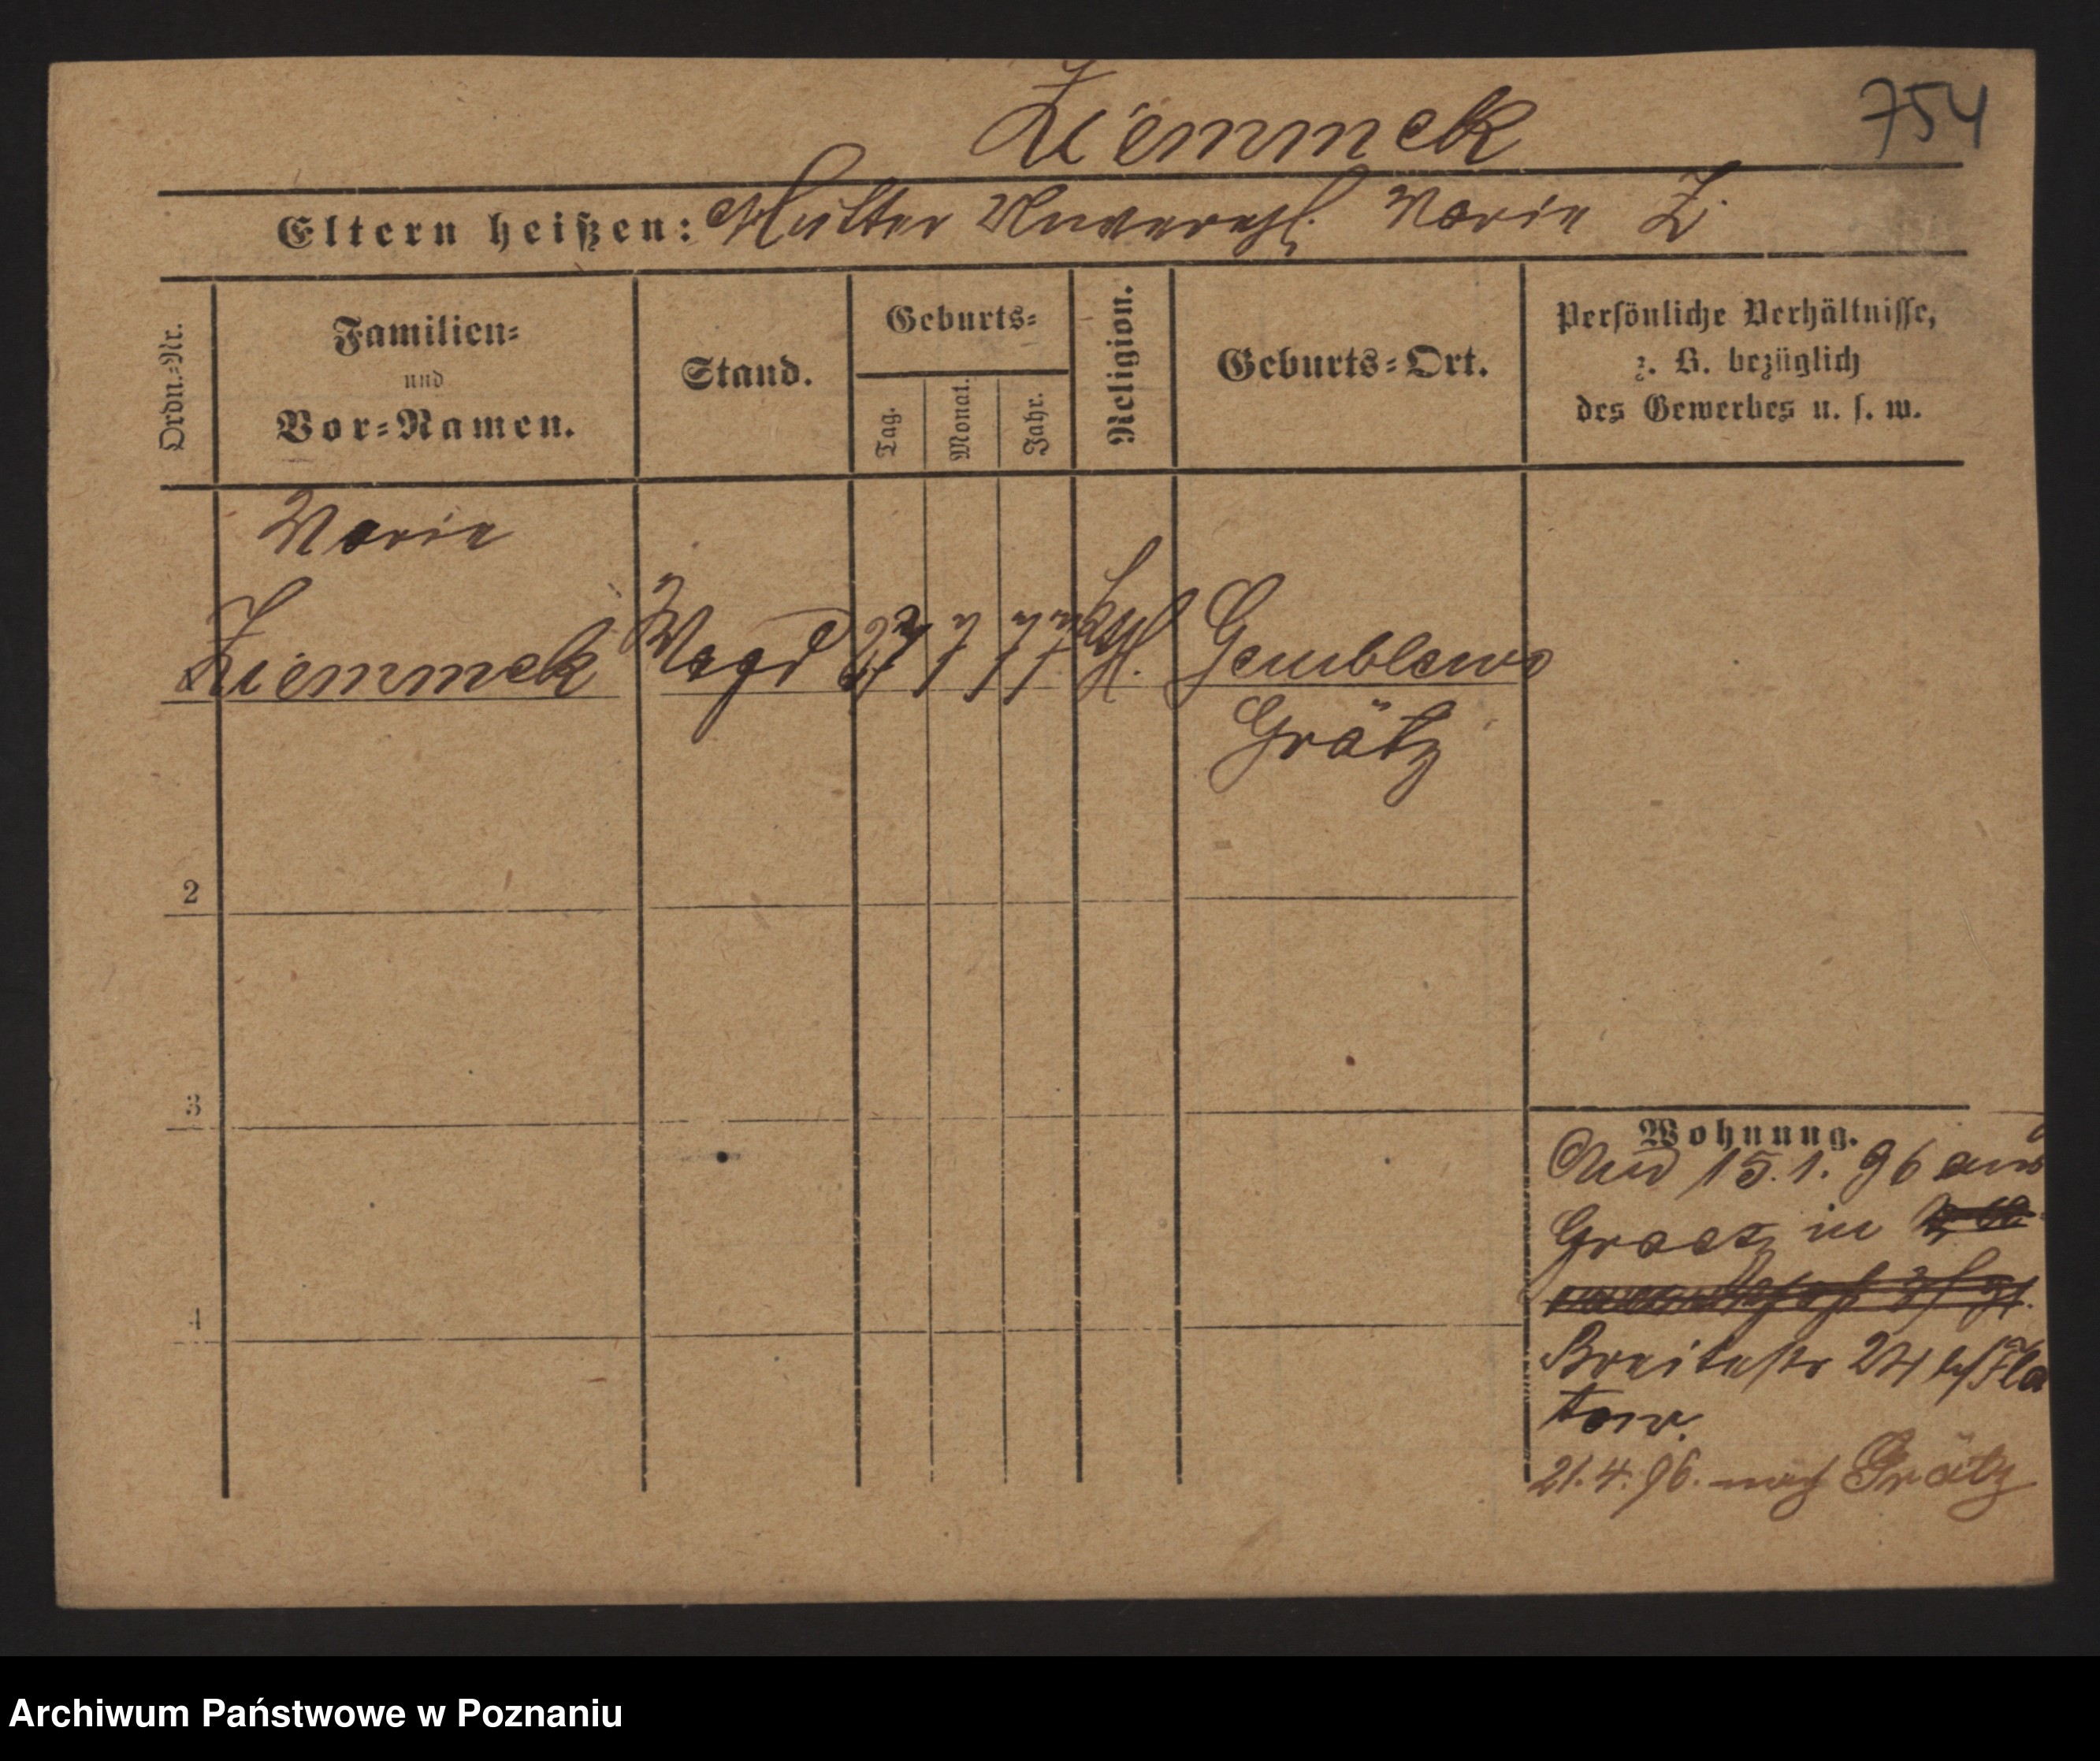 Ziemmek
754
Eltern heißen: Mutter Unverehl. Marie Z.
Ordn.-Nr.
Familien-
und
Vor-Namen.
Stand.
Geburts-
Tag.
Monat.
Jahr.
Religion.
Geburts-Ort.
Persönliche Verhältnisse,
z. B. bezüglich
des Gewerbes u. s. w.
Marie
Ziemmek Magd 27 7 77 kth. Gemblewo
Grätz
2
3
4
Wohnung.
15.1.96 aus
Graetz in
Breitestr 24 b/ Fla
tow.
21.4.96. nach Grätz
Archiwum Państwowe w Poznaniu